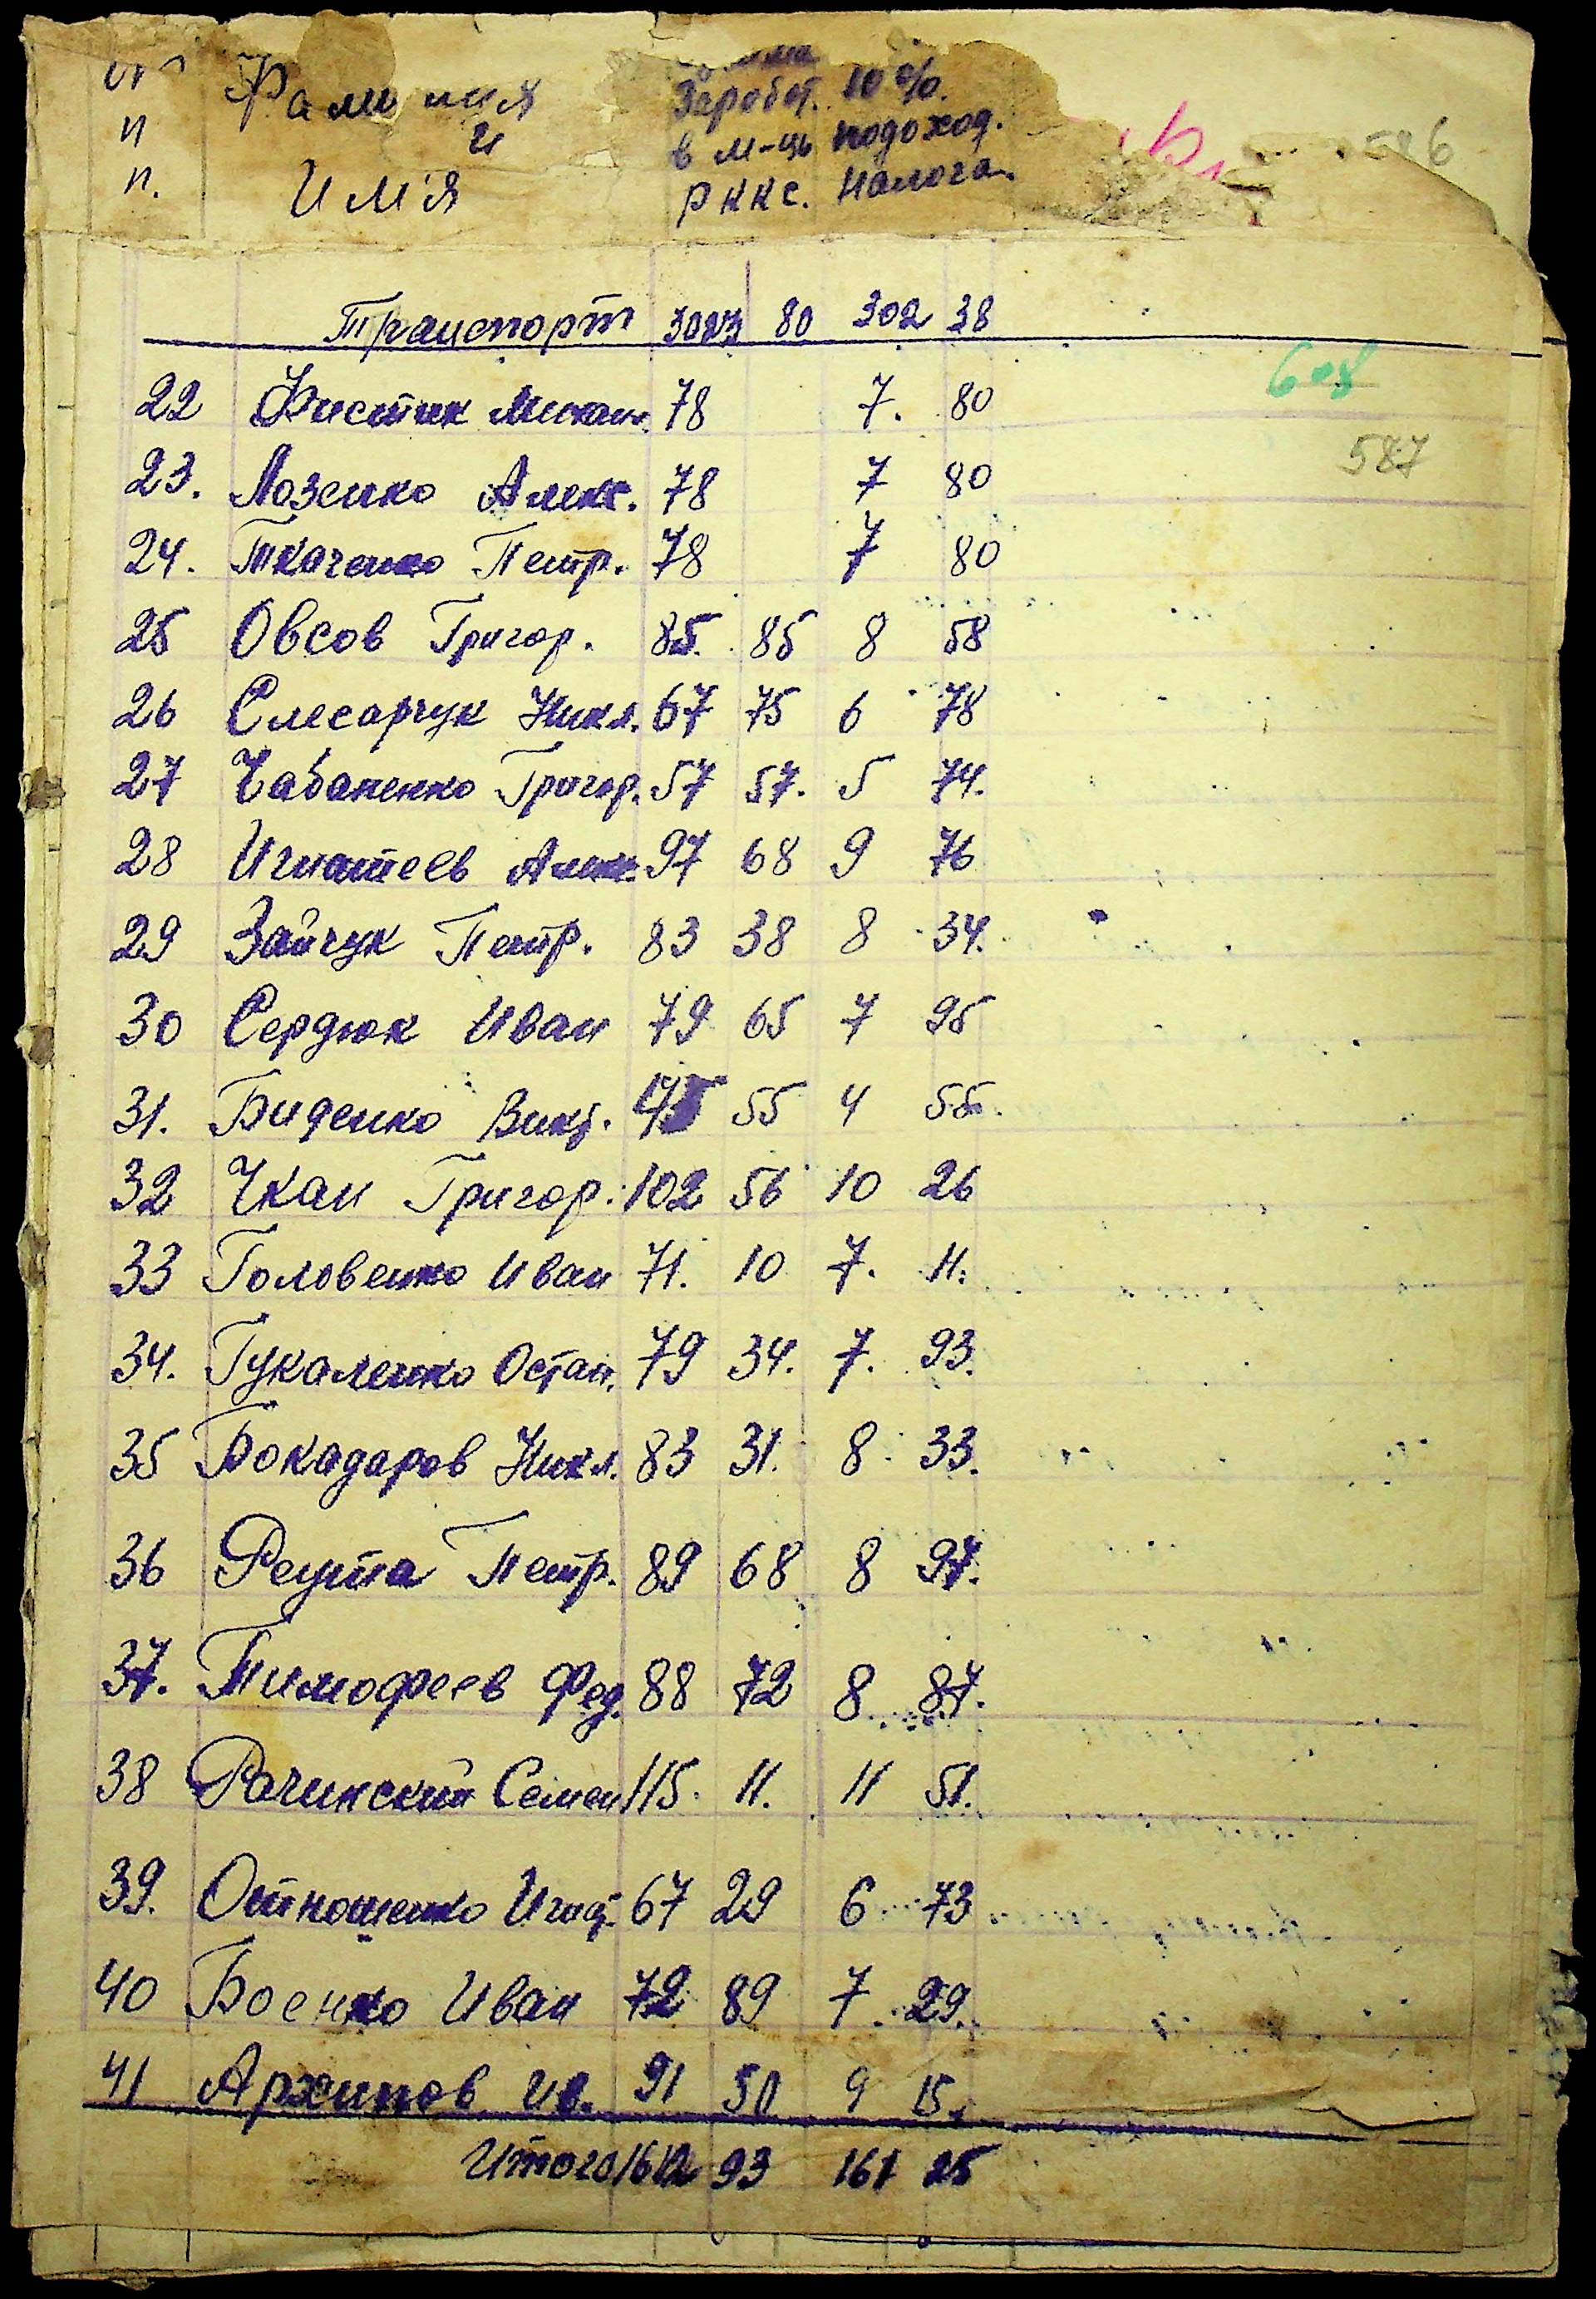 п
п.
Фамилия
и
Имя
Заробот. 10%.
в м-ць подоход.
РККС. налога.
586
Транспорт 3023 80 302 38
608
587
22 Фистик Михаил. 78 7. 80
23. Лозенко Алекс. 78 7 80
24. Ткаченко Петр. 78 7 80
25 Овсов Григор. 85. 85 8 58
26 Слесарчук Никл. 67 75 6 78
27 Чабаненко Григор. 57 57. 5 74.
28 Игнатеев Алек. 97 68 9 76
29 Зайчук Петр. 83 38 8 34.
30 Сердюк Иван 79 65 7 95
31. Биденко Викт. 45 55 4 55.
32 Чкан Григор. 102 56 10 26
33 Головенко Иван 71. 10 7. 11.
34. Гукаленко Остап. 79 34. 7. 93.
35 Бокадаров Никл. 83 31. 8. 33.
36 Реута Петр. 89 68 8 97.
37. Тимофеев Фед. 88 72 8 87.
38 Рачинский Семен 115. 11. 11 51.
39. Отношенко Игнат. 67 29 6 73
40 Боенко Иван 72 89 7. 29.
41 Архипов Ив. 91 50 9 15.
Итого 1612 93 161 25